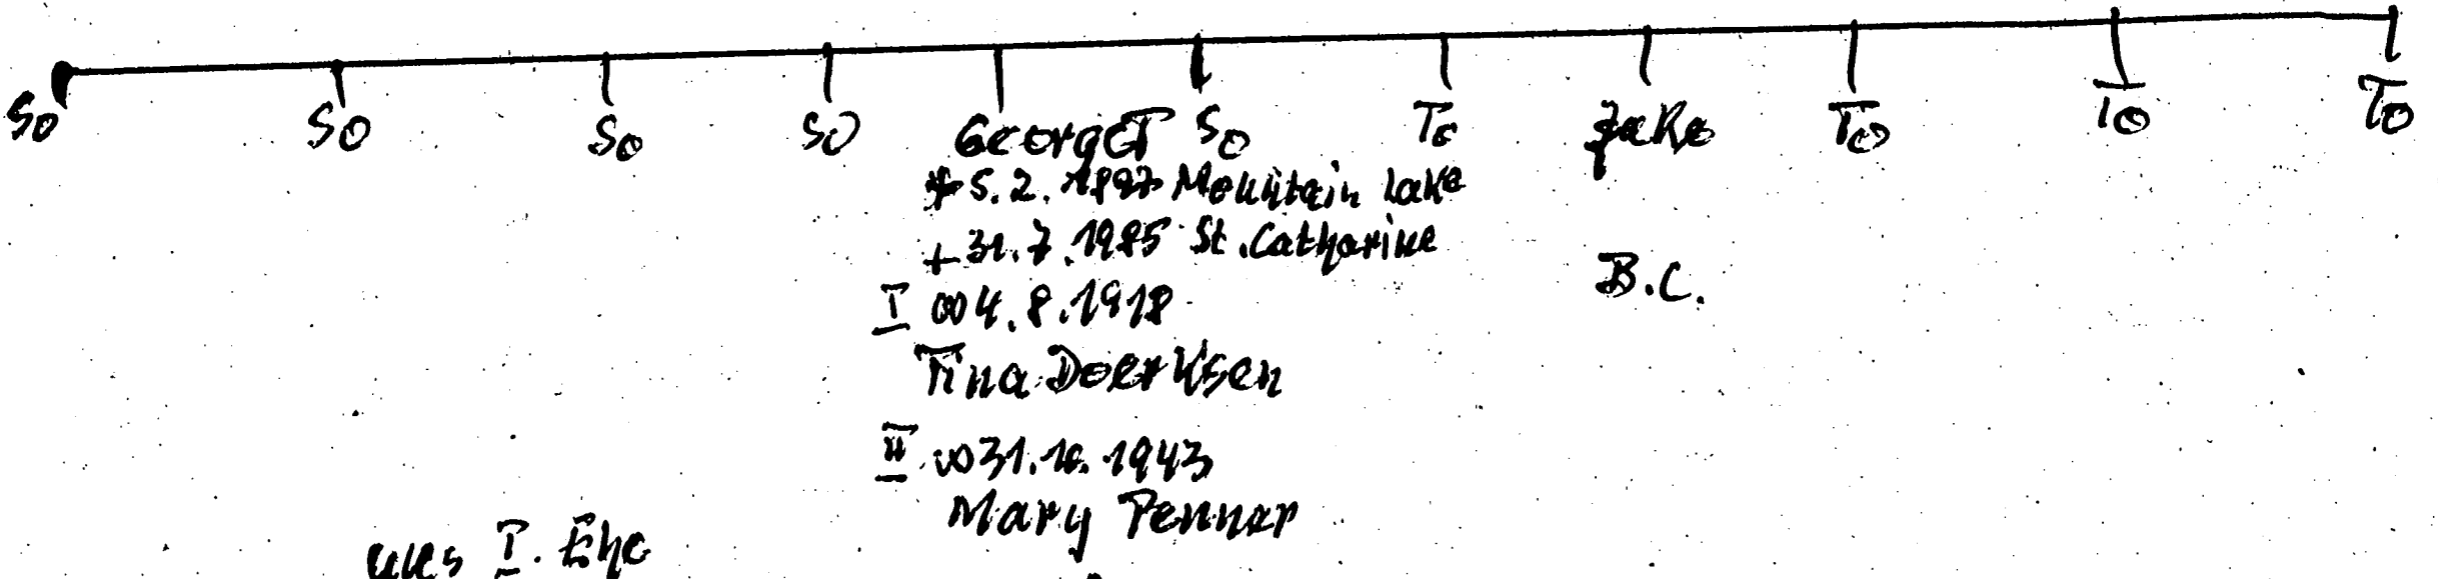 So So So So George T So To Jake To To To
* 5.2.1897 Mountain Lake
+ 31.7.1985 St. Catharine
B.C.
I ∞ 4.8.1918
Tina Doerksen
II ∞ 31.10.1943
Mary Penner
aus I. Ehe